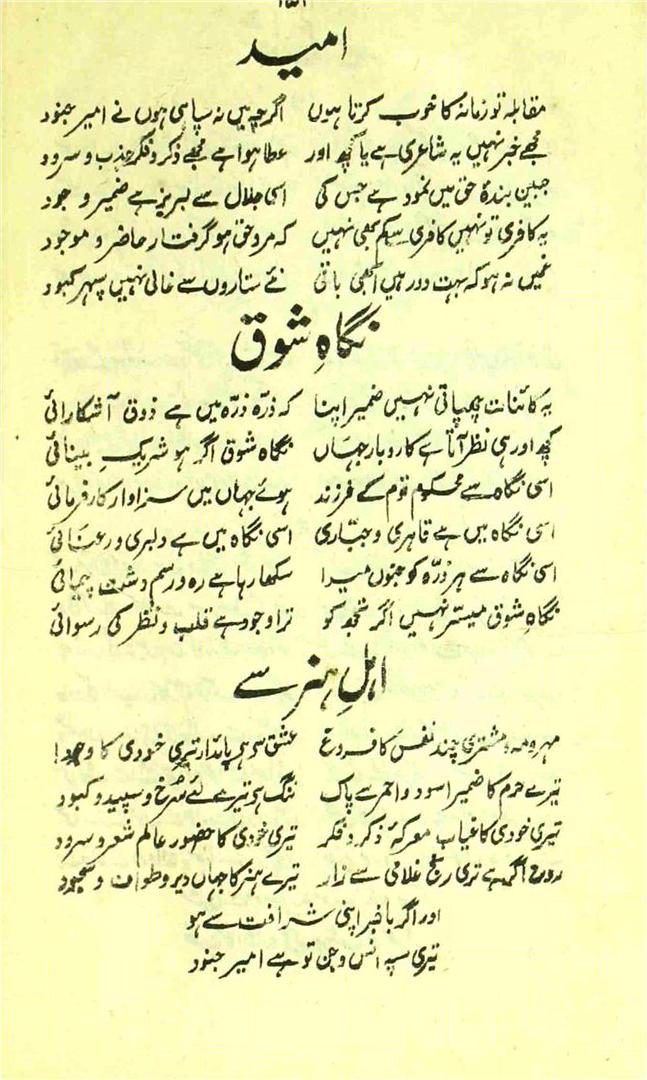 امید
مقابلہ تو زمانہ کا خوب کرتا ہوں اگرچہ میں نہ سپاہی ہوں نے امیر جنود
مجھے خبر نہیں یہ شاعری ہے یا کچھ اور عطا ہوا ہے مجھے ذکر و فکر جذب و سرود
جبین بندۂ حق میں نمود ہے جس کی اسی جلال سے لبریز ہے ضمیر وجود
یہ کافری تو نہیں کافری سے کم بھی نہیں کہ مرد حق ہو گرفتار حاضر و موجود
غمیں نہ ہو کہ بہت دور ہیں ابھی باقی نئے ستاروں سے خالی نہیں سپہر کبود
نگاہِ شوق
یہ کائنات چھپاتی نہیں ضمیر اپنا کہ ذرّہ ذرّہ میں ہے ذوق آشکارائی
کچھ اور ہی نظر آتا ہے کاروبار جہاں نگاہ شوق اگر ہو شریکِ بینائی
اسی نگاہ سے محکوم قوم کے فرزند ہوئے جہاں میں سزاوار کار فرمائی
اسی نگاہ میں ہے قاہری و جبّاری اسی نگاہ میں ہے دلبری و رعنائی
اسی نگاہ سے ہر ذرّہ کو جنوں میرا سکھا رہا ہے رہ و رسم دشت پیمائی
نگاہِ شوق میسّر نہیں اگر تجھ کو ترا وجود ہے قلب و نظر کی رسوائی
اہلِ ہنر سے
مہر و مہ و مشتری چند نفس کا فروغ عشق سے ہے پائدار تیری خودی کا وجود!
تیرے حرم کا ضمیر اسود و احمر سے پاک ننگ ہے تیرے لئے سُرخ و سپید و کبود
تیری خودی کا غیاب معرکۂ ذکر و فکر تیری خودی کا حضور عالم شعر و سرود
روح اگر ہے تری رنج غلامی سے زار تیرے ہنر کا جہاں دیر و طواف و سجود
اور اگر باخبر اپنی شرافت سے ہو
تیری سپہ انس و جن تو ہے امیر جنود